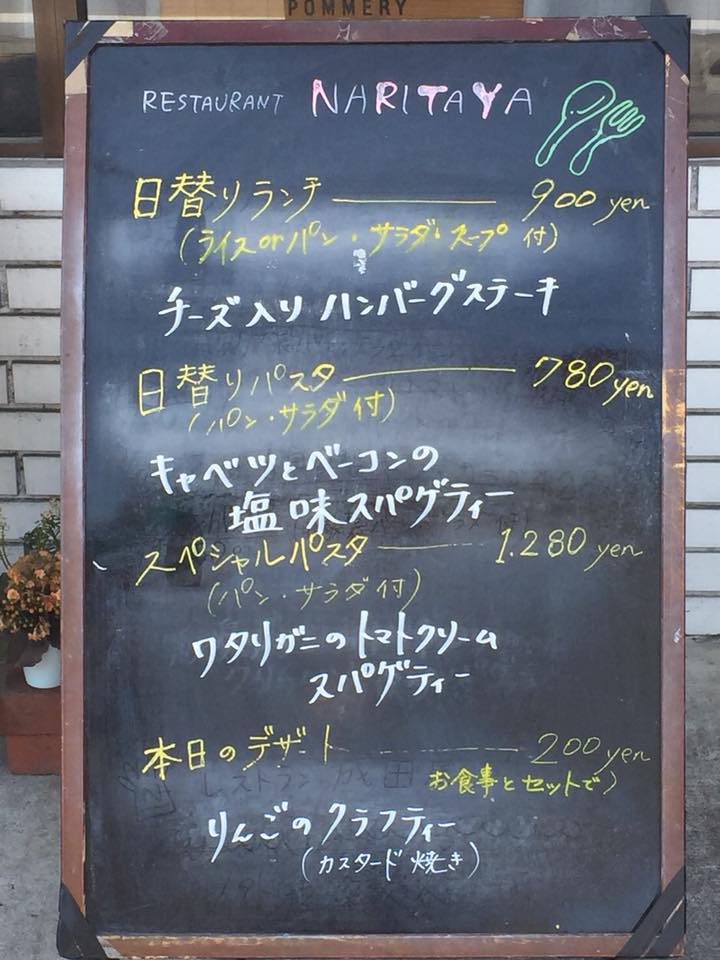 POMMERY
RESTAURANT NARITAYA
日替りランチ 900 yen
(ライスorパン・サラダ・スープ付)
チーズ入りハンバーグステーキ
日替りパスタ 780 yen
(パン・サラダ付)
キャベツとベーコンの
塩味スパゲティー
スペシャルパスタ 1.280 yen
(パン・サラダ付)
ワタリガニのトマトクリーム
スパゲティー
本日のデザート 200 yen
お食事とセットで)
りんごのクラフティー
(カスタード焼き)